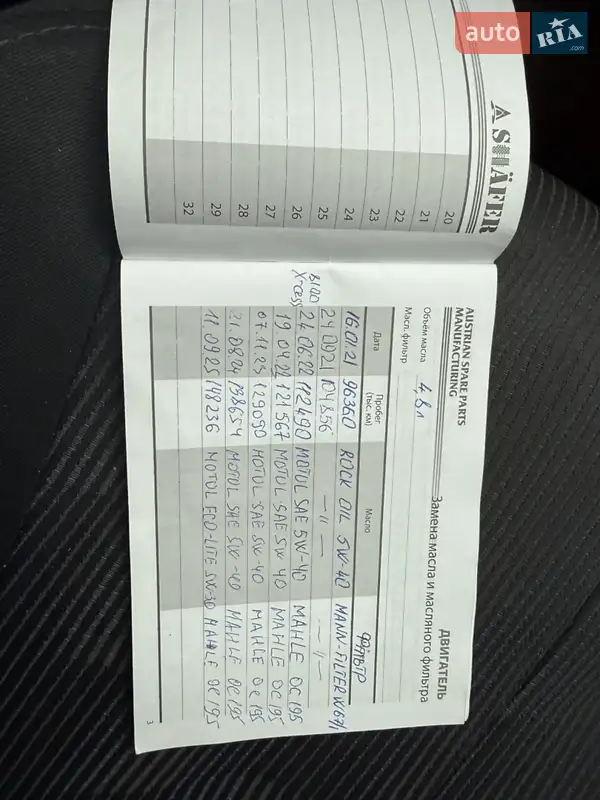 auto RIA .com
SHÄFER
20
21
22
23
24
25
26
27
28
29
32
AUSTRIAN SPARE PARTS
MANUFACTURING
ДВИГАТЕЛЬ
Замена масла и масляного фильтра
Объём масла 4,8л
Масл. фильтр
Дата Пробег (тыс. км) Масло Фильтр
16.01.21 96360 ROCK OIL 5W-40 MANN-FILTER W67/1
8100 24.09.21 104856 —//— —//—
X-cess 24.06.22 112490 MOTUL SAE 5W-40 MAHLE OC195
121567 MOTUL SAE 5W-40 MAHLE OC195
07.11.23 129090 MOTUL SAE 5W-40 MAHLE OC195
21.08.24 138654 MOTUL SAE 5W-40 MAHLE OC195
11.09.25 148236 MOTUL ECO-LITE 5W-30 MAHLE OC195
3